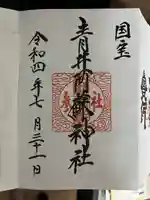 国宝
青井阿蘇神社
令和四年七月三十一日